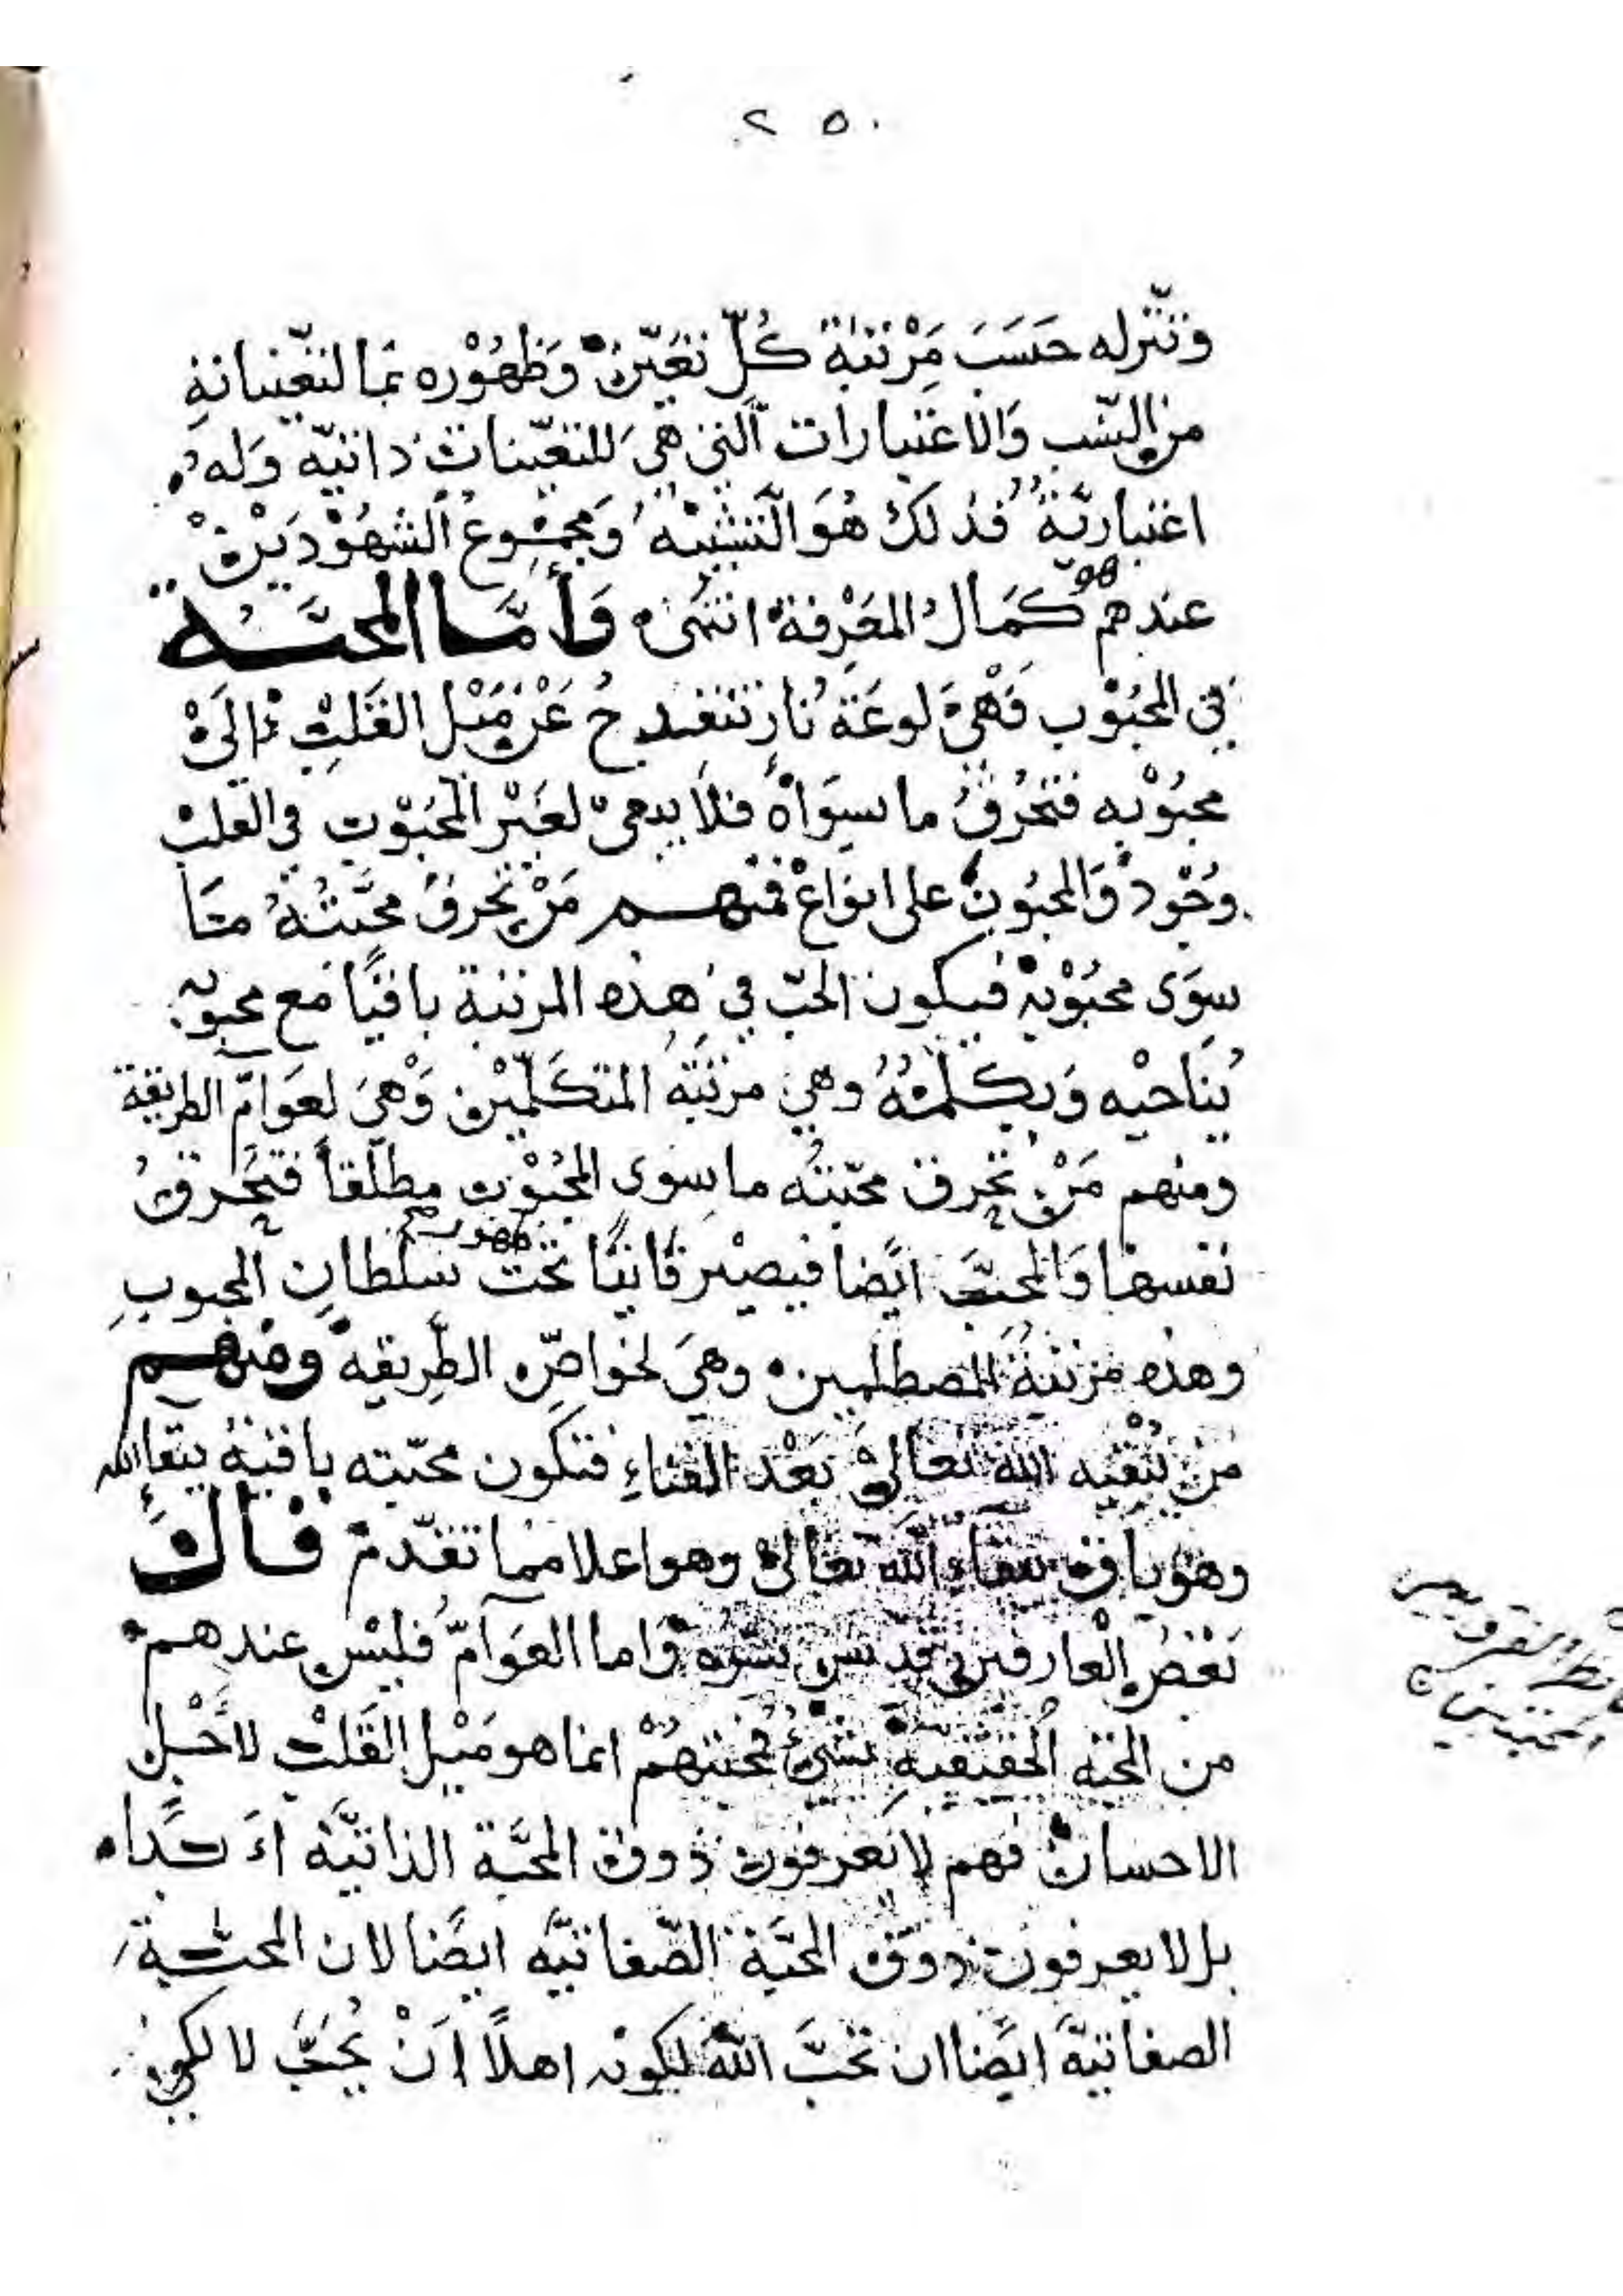 ٢٥٠
وتنزله حسب مرتبة كلّ تعيّن وظهوره بما لتعيّناته
من النّسب والاعتبارات الّتي هي للتعيّنات ذاتيّه وله
اعتباريّة فذلك هو التّشبيه ومجموع الشهودين
هو
عندهم كمال المعرفة انتهى وأمّا المحبّة
في المحبوب فهي لوعة نار تنقدح عن ميل القلب الى
محبوبه فتحرق ما سواه فلا يبقى لغير المحبوب في القلب
وجود والمحبون على انواع فمنهم من تحرق محبّته ما
سوى محبوبه فيكون الحبّ في هذه المرتبة باقيًا مع محبوبه
يناجيه ويكلّمه وهي مرتبة المتكلّمين وهي لعوامّ الطريقة
ومنهم من تحرق محبّته ما سوى المحبوب مطلقاً فتحرق
نفسها والمحبّ ايضًا فيصير فانيًا تحت سلطان المحبوب
ظهور صح
وهذه مرتبة المصطلمين وهي لخواصّ الطريقه ومنهم
من يبقيه الله تعالى بعد الفناء فتكون محبّته باقية ببقاء الله
وهو باق ببقاء الله تعالى وهو اعلا مما تقدّم قال
بعض العارفين قدس سرّه واما العوامّ فليس عندهم
من المحبّه الحقيقية شيء فمحبتهم انما هو ميل القلب لاجل
الاحسان فهم لا يعرفون ذوق المحبّة الذاتيّه ابدًا
بل لا يعرفون ذوق المحبّة الصّفاتيّه ايضًا لان المحبّة
الصفاتيّة ايضًا ان تحبّ الله لكونه اهلًا ان يحبّ لا لكي